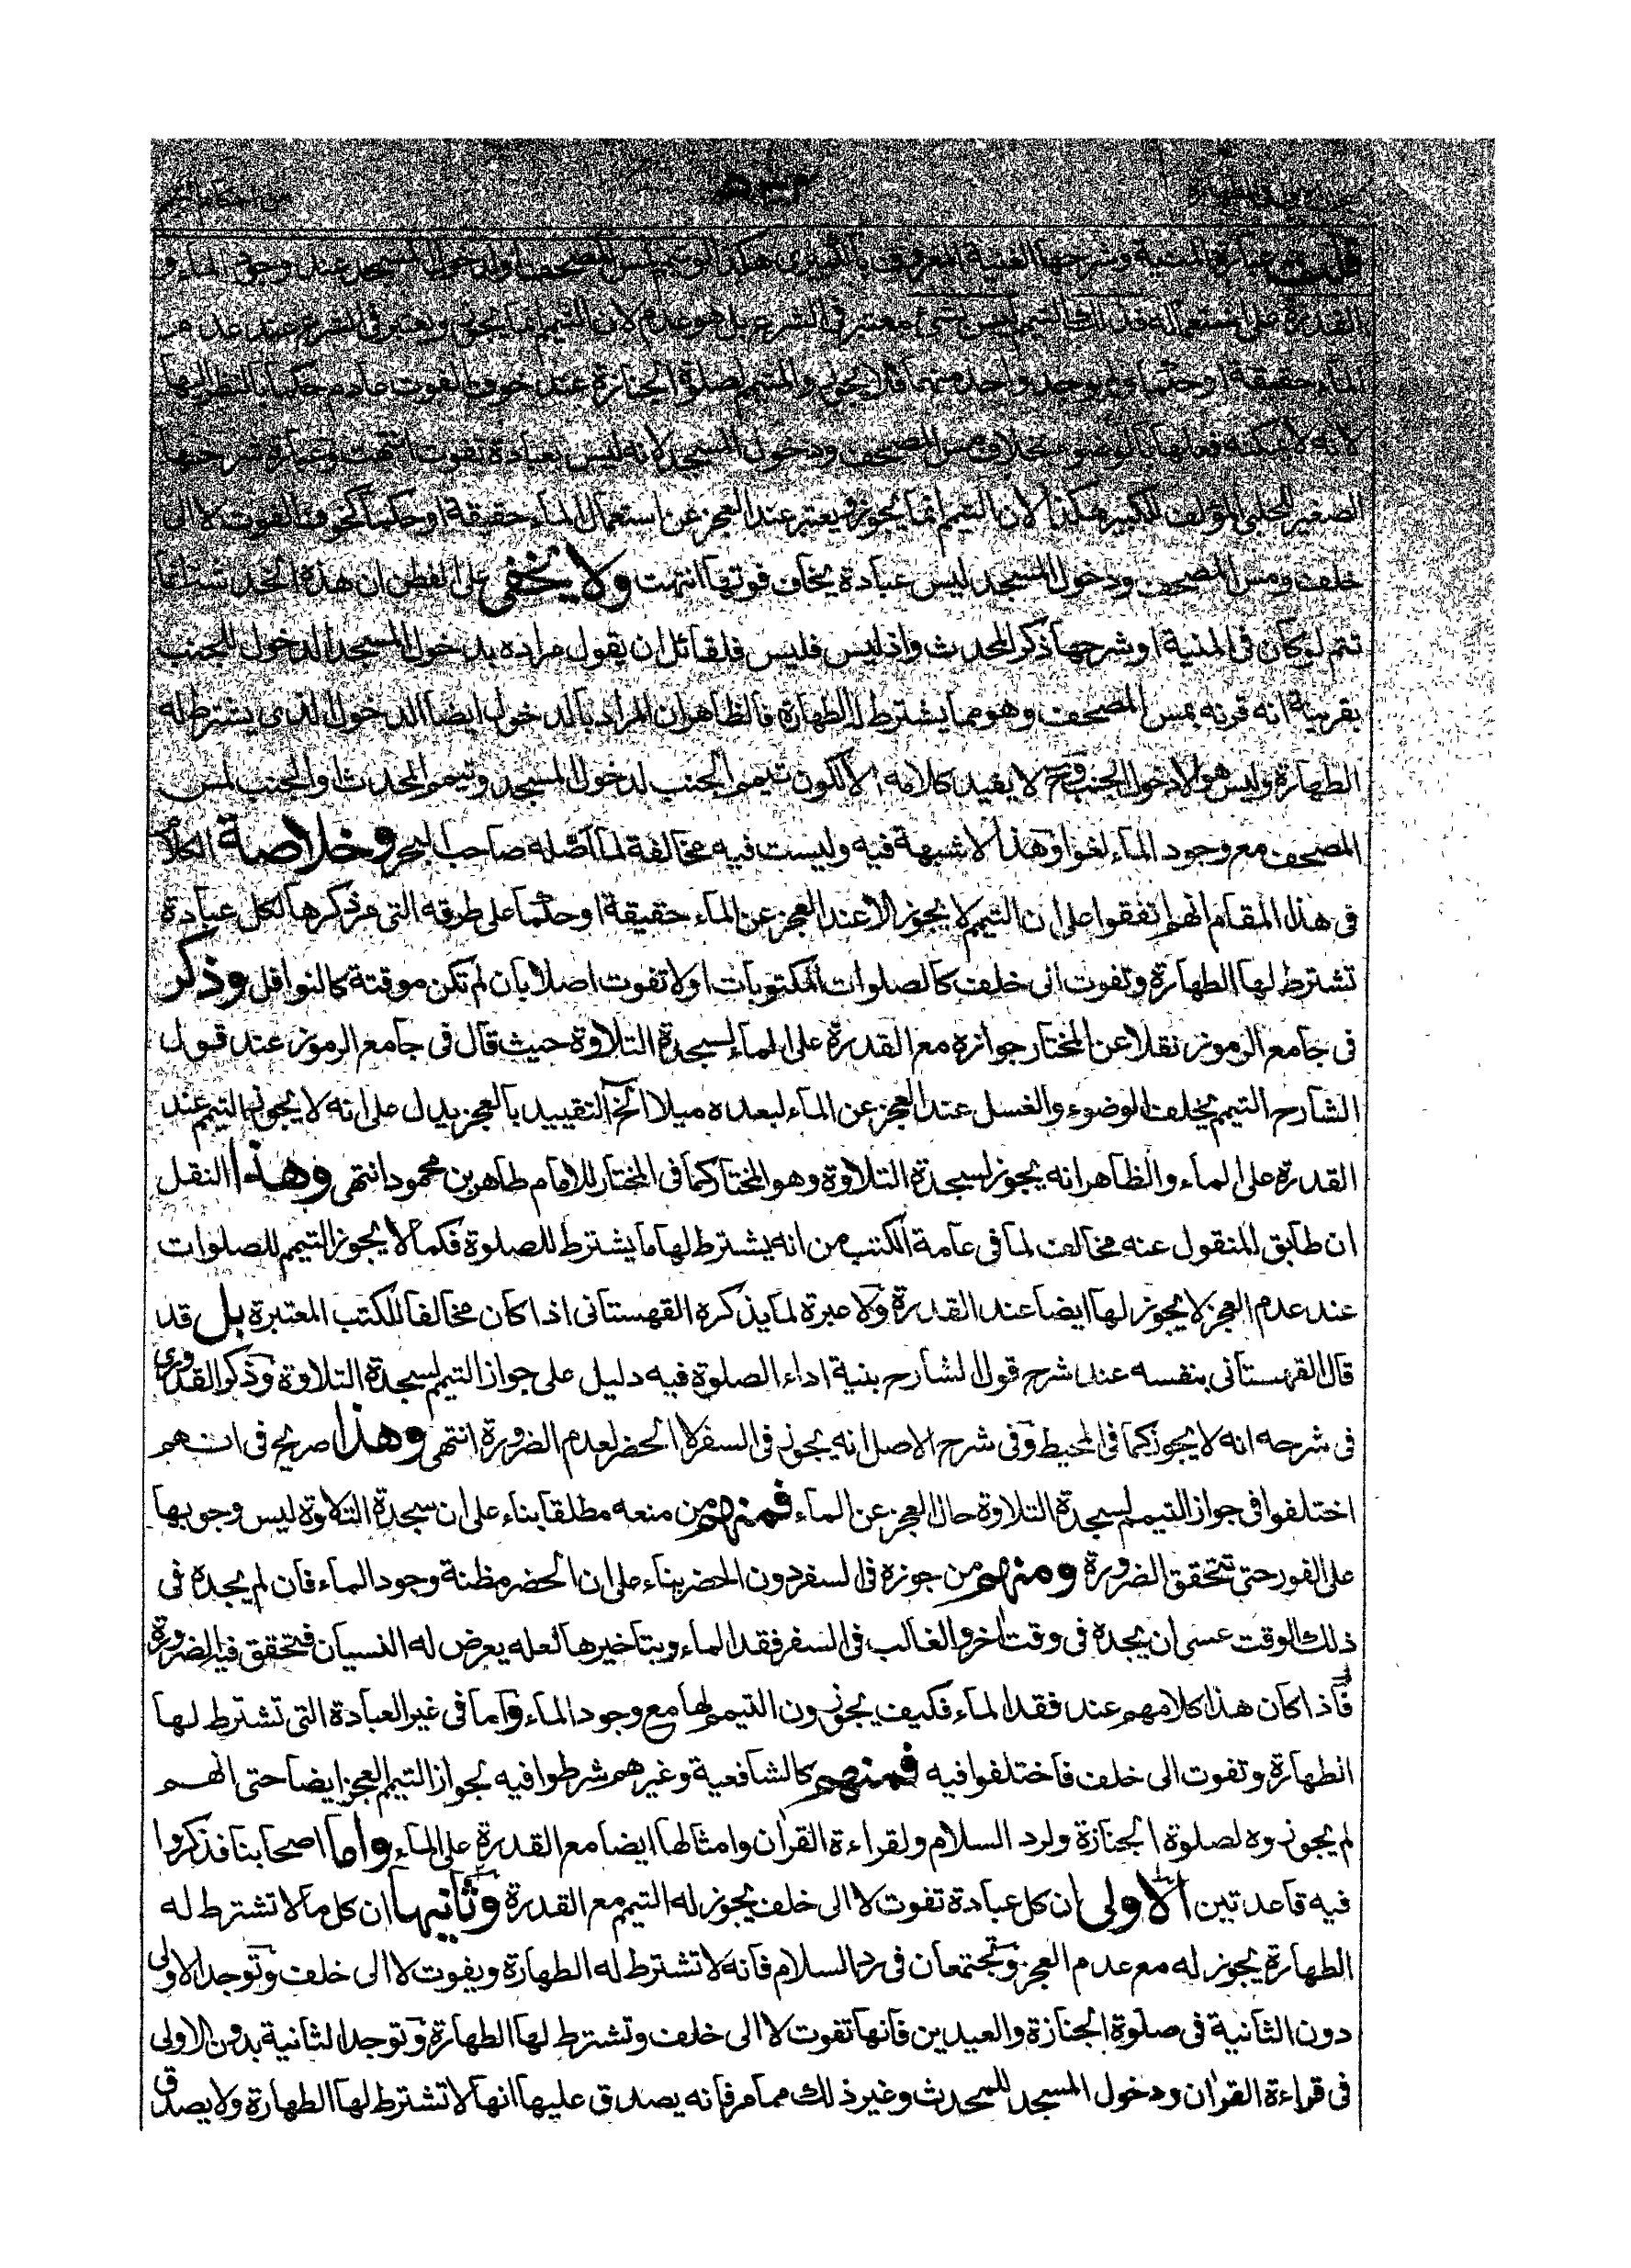 ٥٣٢
قلت عبارة المنية وشرحها الغنية المعروف بالكبيرى هكذا لو تيمم لمس المصحف او لدخول المسجد عند وجود الماء و
القدرة على استعماله فذلك التيمم ليس بشئ معتبر فى الشرع بل هو عدم لان التيمم انما يجوز ويعتبر فى الشرع عند عدم
الماء حقيقة او حكما ولم يوجد واحد منهما فلا يجوز والمتيمم لصلوة الجنازة عند خوف الفوت عادم حكما بالنظر اليها
لانه لا يمكنه فعلها بالوضوء بخلاف مس المصحف ودخول المسجد لانه ليس بعبادة تفوت انتهت وعبارة شرحها
الصغير للحلبى المؤلف للكبير هكذا لان التيمم انما يجوز ويعتبر عند العجز عن استعمال الماء حقيقة او حكما كخوف الفوت لا الى
خلف ومس المصحف ودخول المسجد ليس عبادة يخاف فوتها انتهت ولا يخفى على الفطن ان هذه
تتم لو كان فى المنية او شرحها ذكر المحدث واذ ليس فليس فلقائل ان يقول مراده بدخول المسجد الدخول للجنب
بقرينة انه قرنه بمس المصحف وهو مما يشترط له الطهارة فالظاهر ان المراد بالدخول ايضا الدخول الذى يشترط له
الطهارة وليس هو الا دخول الجنب وح لا يفيد كلامه الا لكون تيمم الجنب لدخول المسجد وتيمم المحدث او الجنب لمس
المصحف مع وجود الماء لغوا وهذا لا شبهة فيه وليست فيه مخالفة لما اصله صاحب البحر وخلاصة الكلام
فى هذا المقام انهم اتفقوا على ان التيمم لا يجوز الا عند العجز عن الماء حقيقة او حكما على طرقه التى مر ذكرها لكل عبادة
تشترط لها الطهارة وتفوت الى خلف كالصلوات المكتوبات او لا تفوت اصلا بان لم تكن موقتة كالنوافل وذكر
فى جامع الرموز نقلا عن المختار جوازه مع القدرة على الماء لسجدة التلاوة حيث قال فى جامع الرموز عند قول
الشارح التيمم يخلف الوضوء والغسل عند العجز عن الماء لبعده ميلا الخ التقييد بالعجز يدل على انه لا يجوز التيمم عند
القدرة على الماء والظاهر انه يجوز لسجدة التلاوة وهو المختار كما فى المختار للامام طاهر بن محمود انتهى وهذا النقل
ان طابق المنقول عنه مخالف لما فى عامة الكتب من انه يشترط لها ما يشترط للصلوة فكما لا يجوز التيمم للصلوات
عند عدم العجز لا يجوز لها ايضا عند القدرة ولا عبرة لما يذكره القهستانى اذا كان مخالفا للكتب المعتبرة بل قد
قال القهستانى بنفسه عند شرح قول الشارح بنية اداء الصلوة فيه دليل على جواز التيمم لسجدة التلاوة وذكر القدورى
فى شرحه انه لا يجوز كما فى المحيط وفى شرح الاصل انه يجوز فى السفر لا الحضر لعدم الضرورة انتهى وهذا صريح فى انهم
اختلفوا فى جواز التيمم لسجدة التلاوة حال العجز عن الماء فمنهم من منعه مطلقا بناء على ان سجدة التلاوة ليس وجوبها
على الفور حتى تتحقق الضرورة ومنهم من جوزه فى السفر دون الحضر بناء على ان الحضر مظنة وجود الماء فان لم يجده فى
ذلك الوقت عسى ان يجده فى وقت اخر والغالب فى السفر فقد الماء وبتاخيرها لعله يعرض له النسيان فتحقق فيه الضرورة
فاذا كان هذا كلامهم عند فقد الماء فكيف يجوزون التيمم لها مع وجود الماء واما فى غير العبادة التى تشترط لها
الطهارة وتفوت الى خلف فاختلفوا فيه فمنهم كالشافعية وغيرهم شرطوا فيه لجواز التيمم العجز ايضا حتى انهم
لم يجوزوه لصلوة الجنازة ولرد السلام ولقراءة القرآن وامثالها ايضا مع القدرة على الماء واما اصحابنا فذكروا
فيه قاعدتين الاولى ان كل عبادة تفوت لا الى خلف يجوز له التيمم مع القدرة وثانيها ان كل ما لا تشترط له
الطهارة يجوز له مع عدم العجز وتجتمعان فى رد السلام فانه لا تشترط له الطهارة ويفوت لا الى خلف وتوجد الاولى
دون الثانية فى صلوة الجنازة والعيدين فانها تفوت لا الى خلف وتشترط لها الطهارة وتوجد الثانية بدون الاولى
فى قراءة القرآن ودخول المسجد للمحدث وغير ذلك مما مر فانه يصدق عليها انها لا تشترط لها الطهارة ولا يصدق